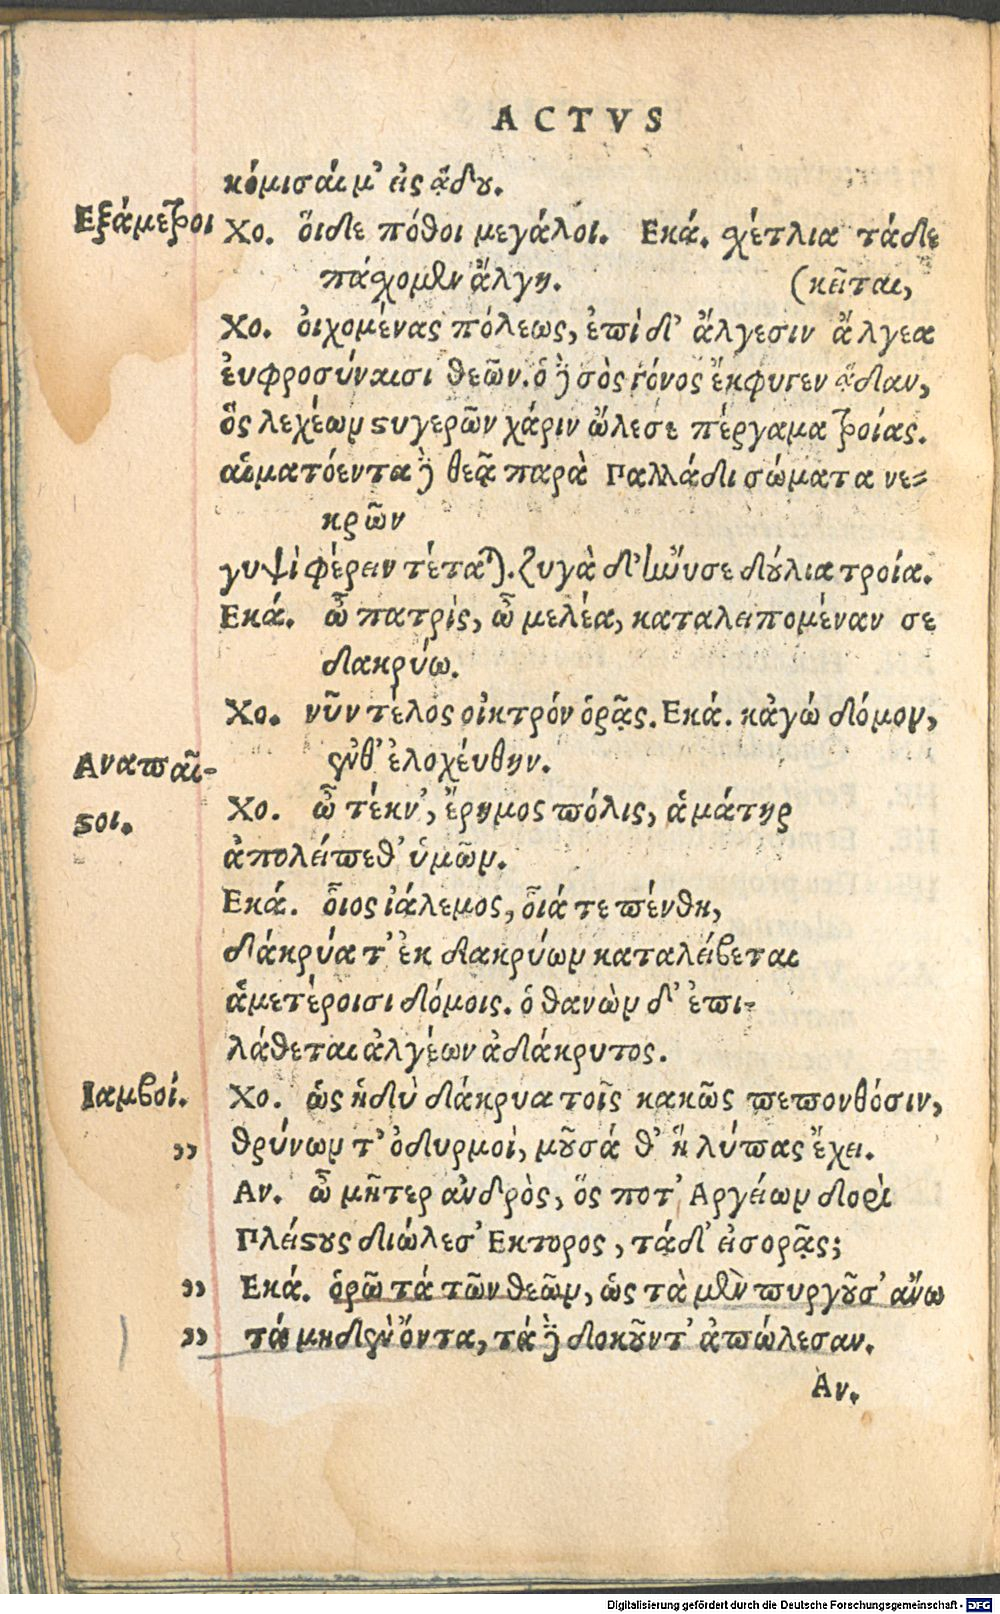 ACTVS
κόμισαί μ' εἰς ᾅδου.
Εξάμετροι
Χο. ὅιδε πόθοι μεγάλοι. Εκά. σχέτλια τάδε
πάσχομεν ἄλγη. (κεῖται,
Χο. ὀιχομένας πόλεως, ἐπὶ δ' ἄλγεσιν ἄλγεα
ἐυφροσύναισι θεῶν. ὁ δὲ σὸς γόνος ἔκφυγεν ᾅδαν,
ὃς λεχέων στυγερῶν χάριν ὤλεσε πέργαμα τροίας.
αἱματόεντα δὲ θεᾷ παρὰ Παλλάδι σώματα νε-
κρῶν
γυψὶ φέρειν τέταται. ζυγὰ δ' ἤνυσε δούλια τροία.
Εκά. ὦ πατρὶς, ὦ μελέα, καταλειπομέναν σε
δακρύω.
Χο. νῦν τέλος οἰκτρόν ὁρᾷς. Εκά. κᾀγώ δόμον,
ἔνθ' ἐλοχέυθην.
Αναπαῖ-
στοι.
Χο. ὦ τέκν', ἔρημος πόλις, ἁμάτηρ
ἀπολείπεθ' ὑμῶν.
Εκά. οἷος ἰάλεμος, οἷά τε πένθη,
δάκρύα τ' ἐκ δακρύων καταλείβεται
ἁμετέροισι δόμοις. ὁ θανὼν δ' ἐπι-
λάθεται ἀλγέων ἀδάκρυτος.
Ιαμβοί.
Χο. ὡς ἡδὺ δάκρυα τοῖς κακῶς πεπονθόσιν,
,, θρύνων τ' ὀδυρμοὶ, μοῦσά θ' ἣ λύπας ἔχει.
Αν. ὦ μῆτερ ἀνδρὸς, ὅς ποτ' Αργείων δορὶ
Πλείστους διώλεσ' Εκτορος, τάδ' εἰσορᾷς;
,, Εκά. ὁρῶ τά τῶν θεῶν, ὡς τὰ μὲν πυργοῦσ' ἄνω
,, τά μηδὲν ὄντα, τά δὲ δοκοῦντ' ἀπώλεσαν.
Αν.
Digitalisierung gefördert durch die Deutsche Forschungsgemeinschaft - DFG